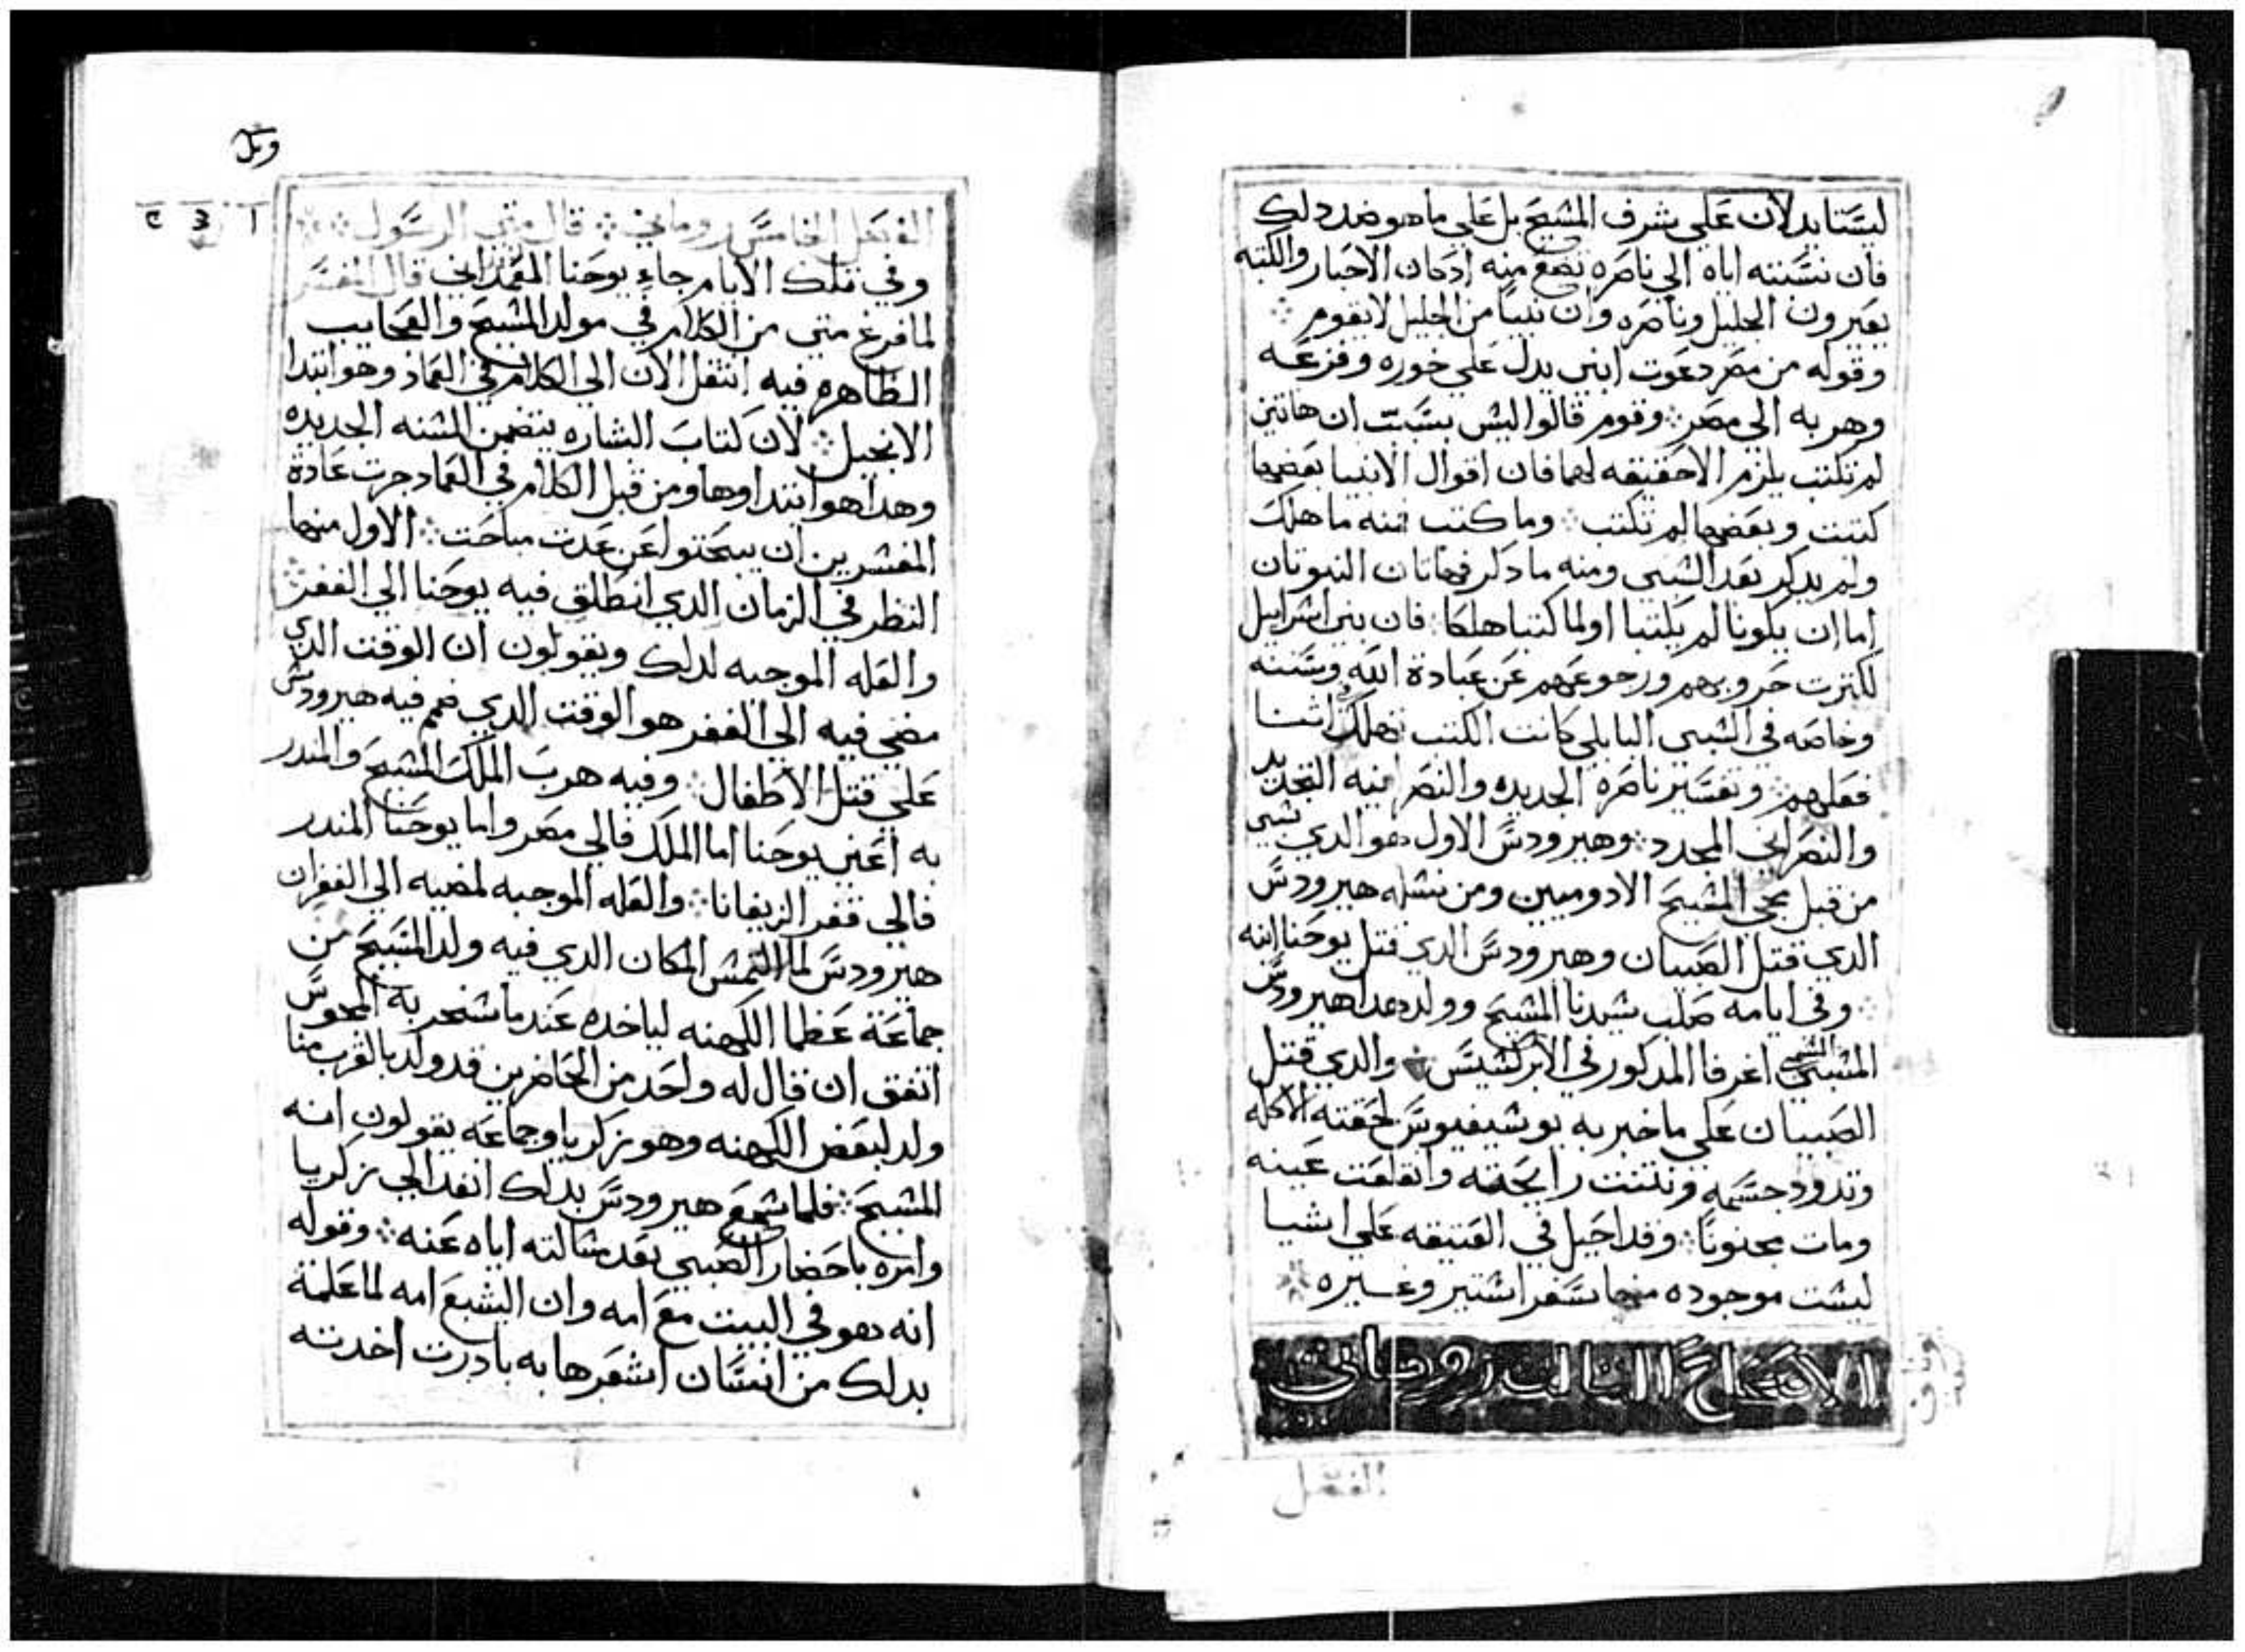 ليستا يدلان علي شرف المشيح بل علي ما هو ضد دلك
فان نسبته اياه الي ناصره تضع منه ادكان الاحبار والكتبه
يعيرون الجليل وناصره وان نبيا من الجليل لا يقوم
وقوله من مصر دعوت ابني يدل علي خوره وفزعه
وهربه الي مصر وقوم قالوا ليس بسبب ان هاتين
لم تكتب يلزم الا حقيقه لهما فان اقوال الانبيا بعضها
كتبت وبعضها لم تكتب وما كتب منه ما هلك
ولم يدكر بعد الشبي ومنه ما دكر فهاتان النبوتان
اما ان يكونا لم يكتبا او لما كتبا هلكا فان بني اشراييل
لكترت حروبهم ورجوعهم عن عبادة الله وسننه
وخاصه في الشبي البابلي كانت الكتب تهلك اثنا
فعلهم وتفسير ناصره الجديده والنصرانيه التجديد
والنصراني المجدد وهيرودس الاول هو الدي شبي
من قبل مجي المشيح الادوميين ومن نشله هيرودس
الدي قتل الصبيان وهيرودس الدي قتل يوحنا ابنه
وفي ايامه صلب شيدنا المشيح وولد هدا هيرودس
المشمي اغرفا المدكور في الابركشيس والدي قتل
الصبيان علي ما خبر به يوشيفيوس لحقته الاكله
وتدود جسمه ونتنت رايحته وانقلعت عينه
ومات مجنونا وقد احيل في العتيقه علي اشيا
ليشت موجوده منها سفر اشتير وغيره
الاصحاح التالت روماني
الفصل
الفصل الخامس روماني قال متي الرسول
وفي تلك الايام جاء يوحنا المعمداني قال المفسر
لما فرغ متي من الكلام في مولد المشيح والعجايب
الظاهره فيه انتقل الان الي الكلام في العماد وهو ابتدا
الانجيل لان كتاب البشاره يتضمن الشنه الجديده
وهدا هو ابتداوها ومن قبل الكلام في العماد جرت عادة
المفشرين ان يبحتوا عن عدت مباحت الاول منها
النظر في الزمان الدي انطلق فيه يوحنا الي القفر
والعله الموجبه لدلك ويقولون ان الوقت الدي
مضي فيه الي القفر هو الوقت الدي صمم فيه هيرودس
علي قتل الاطفال وفيه هرب الملك المشيح والمندر
به اعني يوحنا اما الملك فالي مصر واما يوحنا المندر
فالي قفر الزيفانا والعله الموجبه لمضيه الي القفر ان
هيرودس لما التمس المكان الدي فيه ولد المشيح من
جماعة عظما الكهنه لياخده عند ما شخر به المجوس
اتفق ان قال له واحد من الحاضرين قد ولد بالقرب منا
ولد لبعض الكهنه وهو زكريا وجماعه يقولون انه
المشيح فلما شمع هيرودس بدلك انفد الي زكريا
وامره باحضار الصبي بعد مشالته اياه عنه وقوله
انه هو في البيت مع امه وان اليشبع امه لما علمة
بدلك من انسان اشعرها به بادرت اخدته